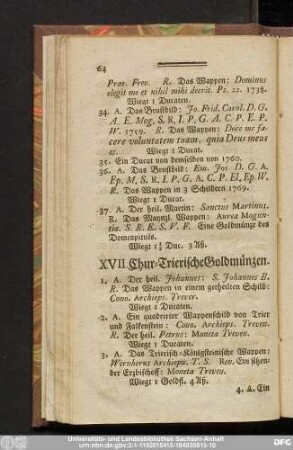 64
Prae. Frev. R. Das Wappen: Dominus
elegit me et nihil mihi deerit. Ps. 22. 1738.
Wiegt 1 Ducaten.
34. A. Das Brustbild: Jo. Frid. Carol. D. G.
A. E. Mog. S. R. I. P. G. A. C. P. E. P.
W. 1759. R. Das Wappen: Doce me fa-
cere voluntatem tuam, quia Deus meus
es. Wiegt 1 Ducat.
35. Ein Ducat von demselben von 1760.
36. A. Das Brustbild: Em. Jos. D. G. A.
Ep. M. S. R. I. P. G. A. C. P. El. Ep. W.
R. Das Wappen in 3 Schildern 1769.
Wiegt 1 Ducat.
37. A. Der heil. Martin: Sanctus Martinus.
R. Das Mayntz. Wappen: Aurea Mogun-
tia. S. R. E. S. V. F. Eine Goldmünze des
Domcapituls.
Wiegt 1¼ Duc. 3 Aß.
XVII. Chur-Trierische Goldmünzen.
1. A. Der heil. Johannes: S. Johannes B.
R. Das Wappen in einem getheilten Schild:
Cono. Archieps. Trever.
Wiegt 1 Ducaten.
2. A. Ein quadrirter Wappenschild von Trier
und Falkenstein: Cuno. Archieps. Treven.
R. Der heil. Petrus: Moneta Treven.
Wiegt 1 Ducaten.
3. A. Das Trierisch-Königsteinische Wappen:
Wernherus Archieps. T. S. Rev. Ein sitzen
der Erzbischoff: Moneta Treven.
Wiegt 1 Goldfl. 4 Aß.
4. A. Ein
Universitäts- und Landesbibliothek Sachsen-Anhalt
urn:nbn:de:gbv:3:1-1192015415-184835815-10
DFG